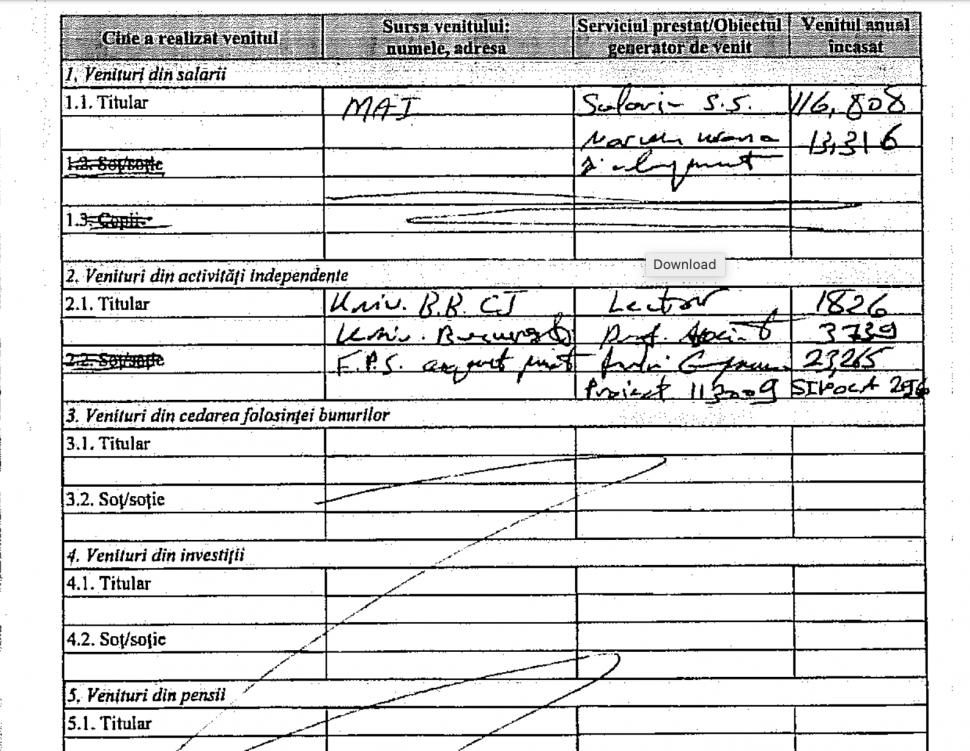 Cine a realizat venitul Sursa venitului: numele, adresa Serviciul prestat/Obiectul generator de venit Venitul anual încasat
1. Venituri din salarii
1.1. Titular MAI S.S. 116,808
13,316
1.2. Soț/soție
1.3. Copii
Download
2. Venituri din activități independente
2.1. Titular Univ. B.B. CJ Lector 1826
Univ. 3739
2.2. Soț/soție 23,265
Proiect SIPOCA 296
3. Venituri din cedarea folosinței bunurilor
3.1. Titular
3.2. Soț/soție
4. Venituri din investiții
4.1. Titular
4.2. Soț/soție
5. Venituri din pensii
5.1. Titular